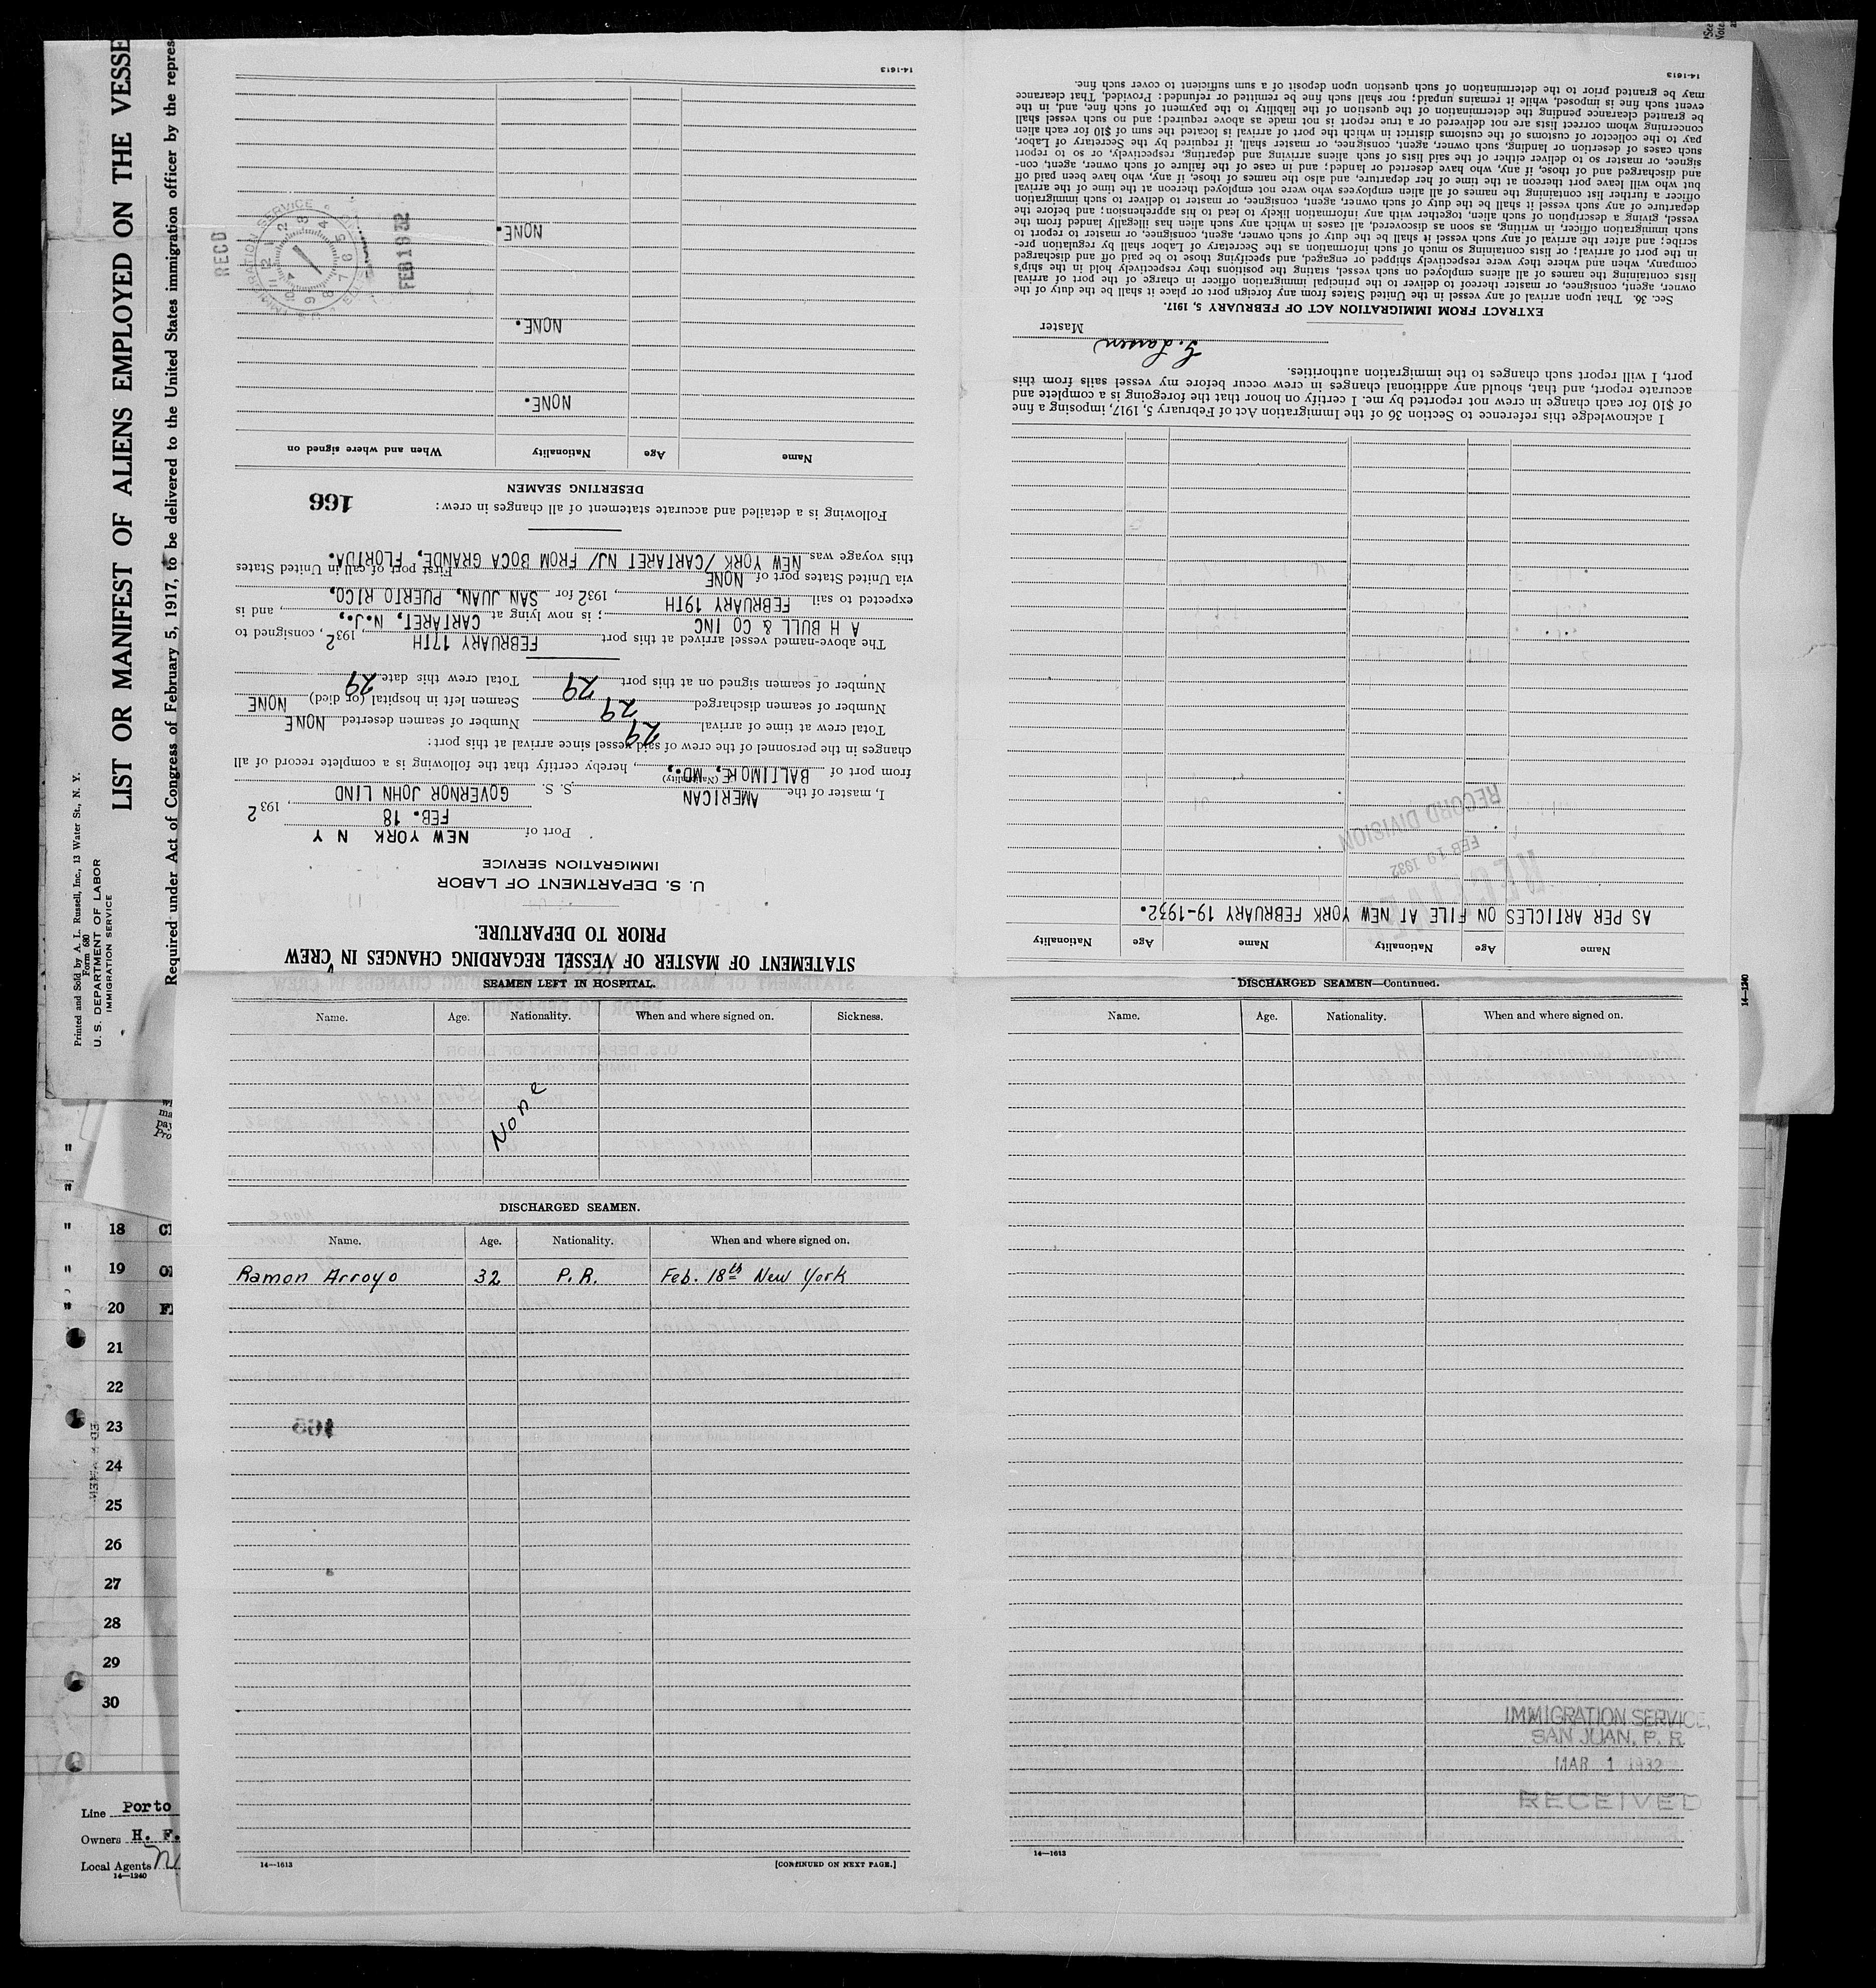 LIST OR MANIFEST OF ALIENS EMPLOYED ON THE VESSE
Required under Act of Congress of February 5, 1917, to be delivered to the United States immigration officer by the repres
Printed and Sold by A. L. Russell, Inc., 13 Water St., N. Y.
Form 680
U. S. DEPARTMENT OF LABOR
IMMIGRATION SERVICE
STATEMENT OF MASTER OF VESSEL REGARDING CHANGES IN CREW
PRIOR TO DEPARTURE.
U. S. DEPARTMENT OF LABOR
IMMIGRATION SERVICE
Port of NEW YORK N Y
FEB. 18, 1932
I, master of the AMERICAN S. S. GOVERNOR JOHN LIND
(Nationality)
from port of BALTIMORE, MD., hereby certify that the following is a complete record of all
changes in the personnel of the crew of said vessel since arrival at this port:
Total crew at time of arrival 29 Number of seamen deserted NONE
Number of seamen discharged 29 Seamen left in hospital (or died) NONE
Number of seamen signed on at this port 29 Total crew this date 29
The above-named vessel arrived at this port FEBRUARY 17TH, 1932, consigned to
A H BULL & CO INC ; is now lying at CARTARET, N.J., and is
expected to sail FEBRUARY 19TH, 1932 for SAN JUAN, PUERTO RICO,
via United States port of NONE First port of call in United States
this voyage was NEW YORK /CARTARET NJ/ FROM BOCA GRANDE, FLORIDA.
Following is a detailed and accurate statement of all changes in crew:
166
DESERTING SEAMEN
Name Age Nationality When and where signed on
NONE.
NONE.
NONE.
RECD
U. S. IMMIGRATION SERVICE
FEB 19 32
14-1613
Name Age Nationality Name Age Nationality
AS PER ARTICLES ON FILE AT NEW YORK FEBRUARY 19-1932.
FEB 19 1932
RECORD DIVISION
I acknowledge this reference to Section 36 of the Immigration Act of February 5, 1917, imposing a fine
of $10 for each change in crew not reported by me. I certify on honor that the foregoing is a complete and
accurate report, and that, should any additional changes in crew occur before my vessel sails from this
port, I will report such changes to the immigration authorities.
G. Larsen
Master
EXTRACT FROM IMMIGRATION ACT OF FEBRUARY 5, 1917.
Sec. 36. That upon arrival of any vessel in the United States from any foreign port or place it shall be the duty of the
owner, agent, consignee, or master thereof to deliver to the principal immigration officer in charge of the port of arrival
lists containing the names of all aliens employed on such vessel, stating the positions they respectively hold in the ship's
company, when and where they were respectively shipped or engaged, and specifying those to be paid off and discharged
in the port of arrival; or lists containing so much of such information as the Secretary of Labor shall by regulation pre-
scribe; and after the arrival of any such vessel it shall be the duty of such owner, agent, consignee, or master to report to
such immigration officer, in writing, as soon as discovered, all cases in which any such alien has illegally landed from the
vessel, giving a description of such alien, together with any information likely to lead to his apprehension; and before the
departure of any such vessel it shall be the duty of such owner, agent, consignee, or master to deliver to such immigration
officer a further list containing the names of all alien employees who were not employed thereon at the time of the arrival
but who will leave port thereon at the time of her departure, and also the names of those, if any, who have been paid off
and discharged and of those, if any, who have deserted or landed; and in case of the failure of such owner, agent, con-
signee, or master so to deliver either of the said lists of such aliens arriving and departing, respectively, or so to report
such cases of desertion or landing, such owner, agent, consignee, or master shall, if required by the Secretary of Labor,
pay to the collector of customs of the customs district in which the port of arrival is located the sum of $10 for each alien
concerning whom correct lists are not delivered or a true report is not made as above required; and no such vessel shall
be granted clearance pending the determination of the question of the liability to the payment of such fine, and, in the
event such fine is imposed, while it remains unpaid; nor shall such fine be remitted or refunded: Provided, That clearance
may be granted prior to the determination of such question upon deposit of a sum sufficient to cover such fine.
14-1613
SEAMEN LEFT IN HOSPITAL.
Name. Age. Nationality. When and where signed on. Sickness.
None
DISCHARGED SEAMEN.
Name. Age. Nationality. When and where signed on.
Ramon Arroyo 32 P. R. Feb. 18th New York
14—1613 [CONTINUED ON NEXT PAGE.]
DISCHARGED SEAMEN—Continued.
Name. Age. Nationality. When and where signed on.
IMMIGRATION SERVICE,
SAN JUAN, P. R
MAR 1 1932
RECEIVED
14—1613
14—1240
18
19
20
21
22
23
24
25
26
27
28
29
30
Line Porto
Owners H. F.
Local Agents
14—1240